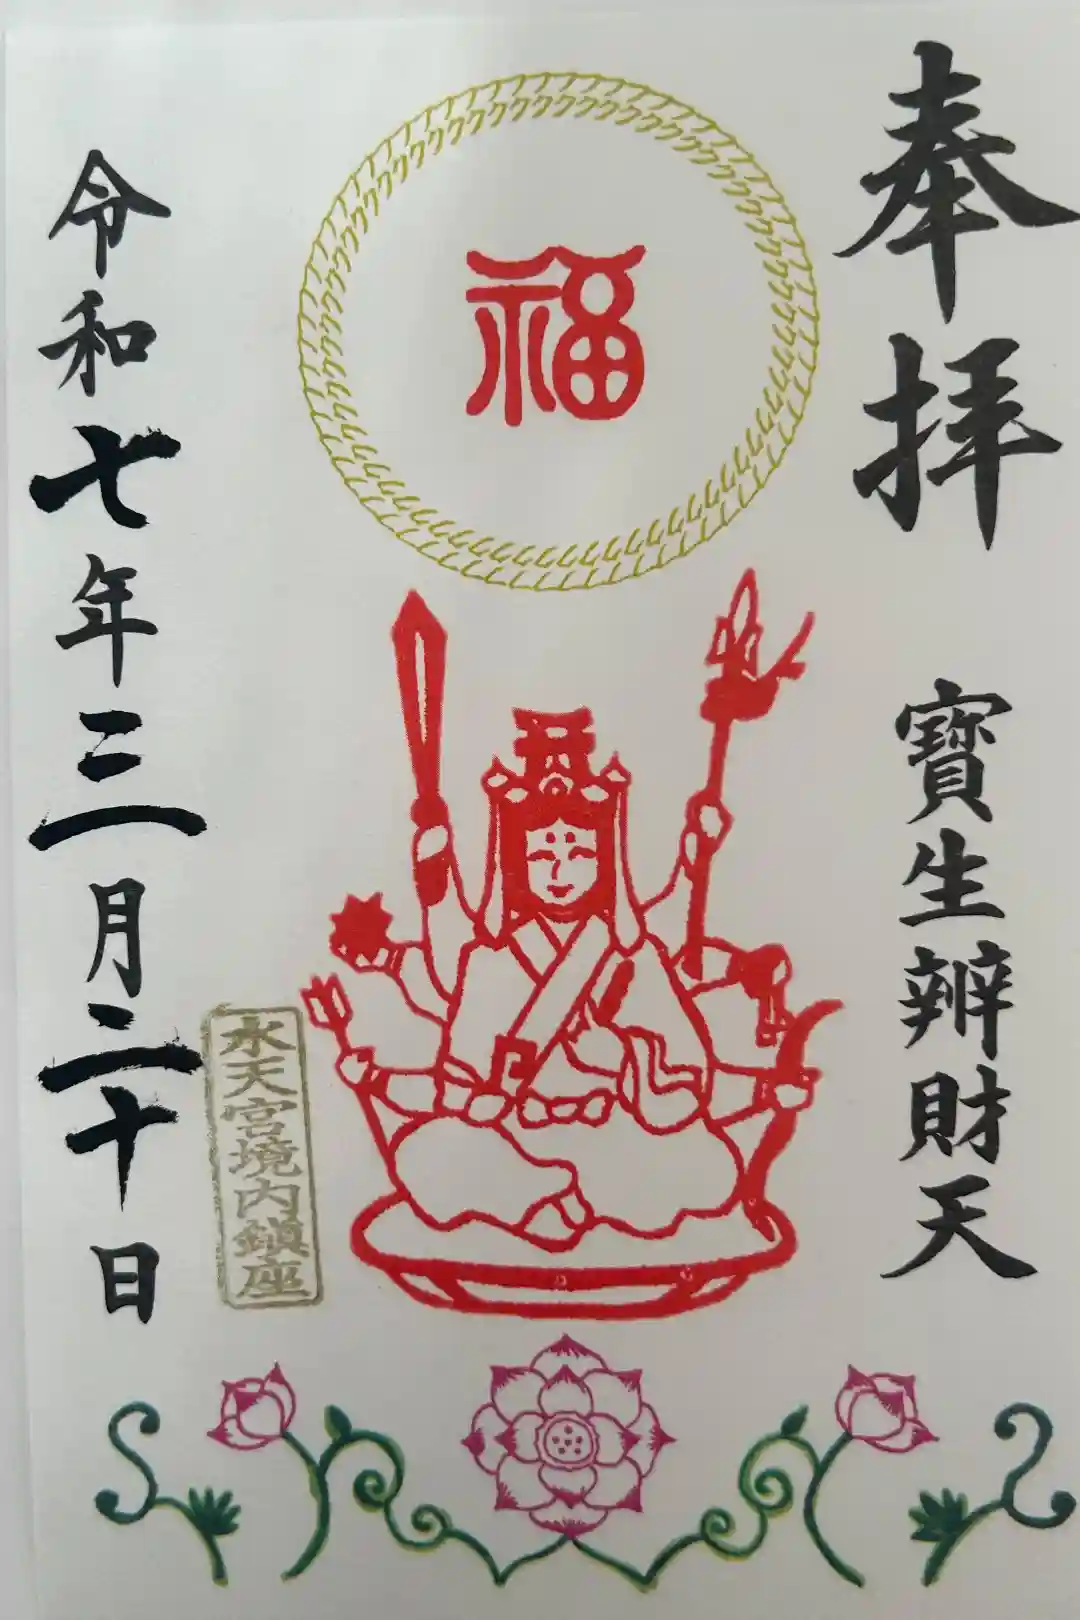 奉拝
寶生辨財天
福
水天宮境内鎮座
令和七年三月二十日